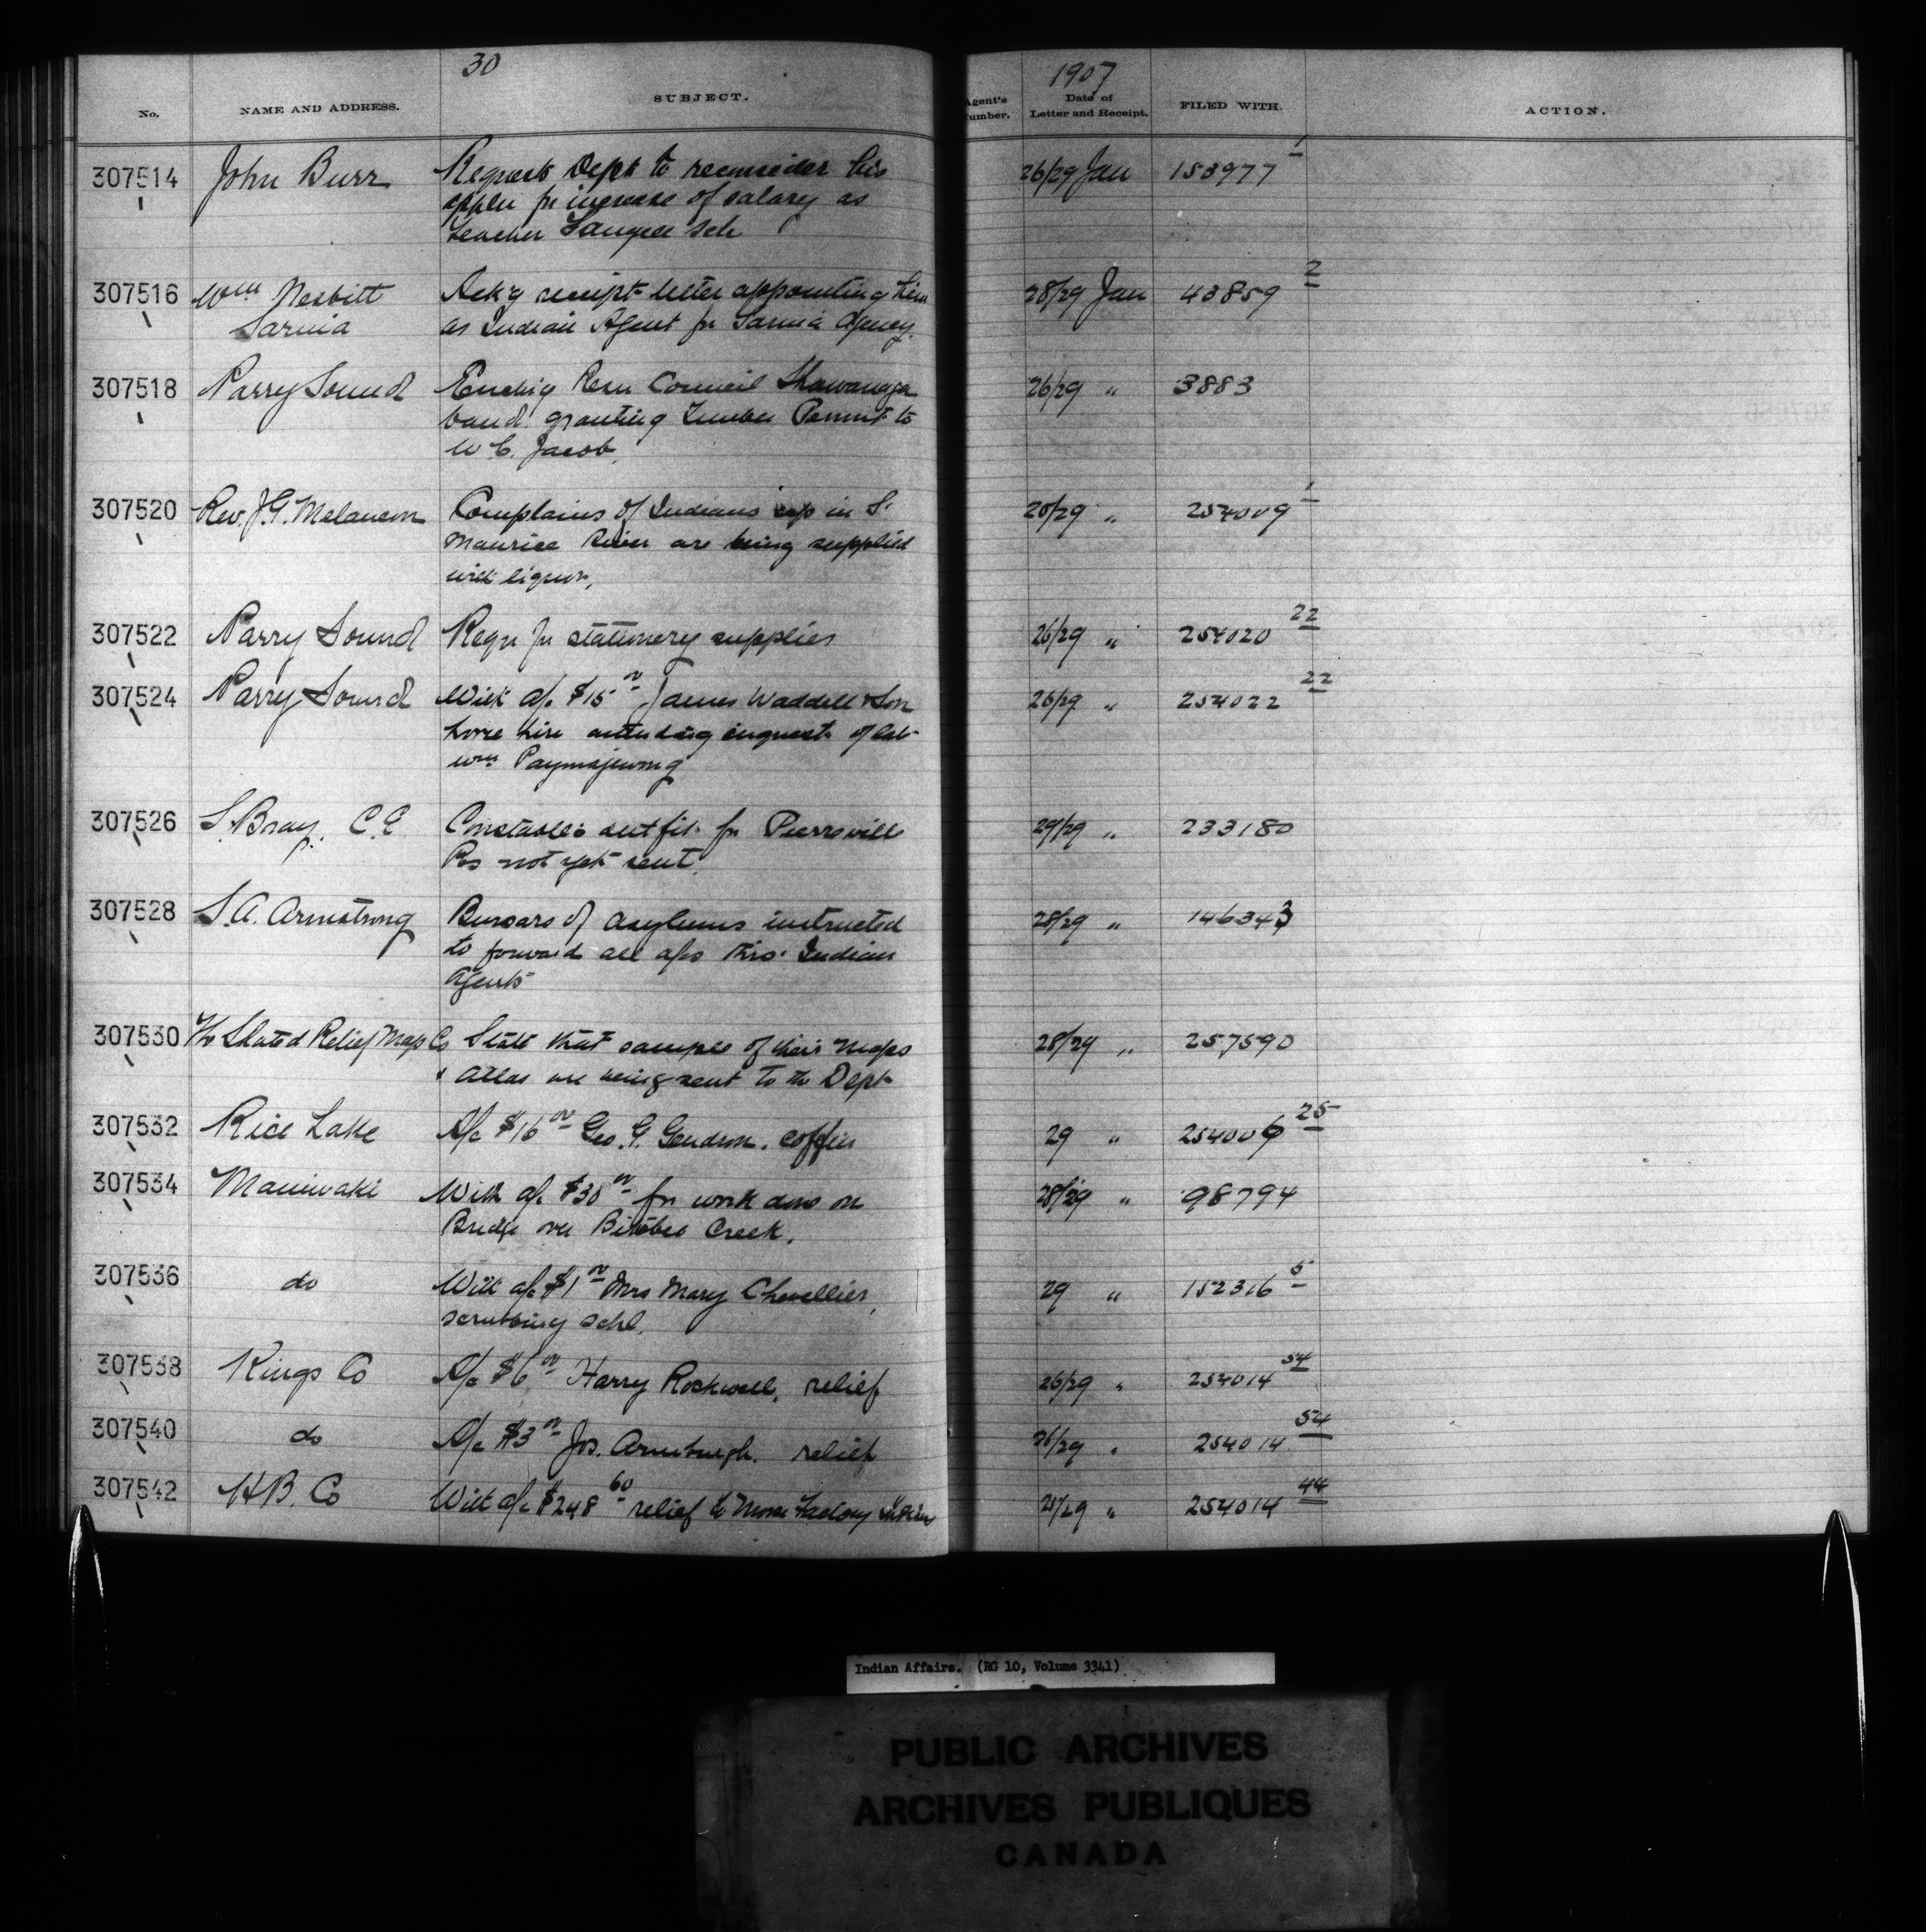 30
1907
No. NAME AND ADDRESS. SUBJECT. Agent's Number. Date of Letter and Receipt. FILED WITH. ACTION.
307514 John Burr Requests Dept to reconsider his 26/29 Jan 153977 1
appln for increase of salary as
teacher Saugeen Sch
307516 Wm Nesbitt Ack'g receipt letter appointing him 28/29 Jan 43859 2
Sarnia as Indian Agent for Sarnia Agency.
307518 Parry Sound Enclos'g Resn Council Shawanaga 26/29 " 3883
band granting Timber Permit to
W. C. Jacob.
307520 Rev. J. G. Melancon Complains of Indians up in St. 28/29 " 254009 1
Maurice River are being supplied
with liquor.
307522 Parry Sound Reqn for stationery supplies 26/29 " 254020 22
307524 Parry Sound With a/c $15 00 James Waddell & Son 26/29 " 254022 22
horse hire attending inquest of late
Wm Paymajewong
307526 S. Bray. C.E Constable's outfit for Pierreville 29/29 " 233180
Res not yet sent.
307528 S. A. Armstrong Bursars of asylums instructed 28/29 " 146343
to forward all a/cs thro' Indian
Agents
307530 The Slated Relief Map Co State that samples of their maps 28/29 " 257590
& atlas are being sent to the Dept
307532 Rice Lake A/c $16 00 Geo. G. Gendron. coffin 29 " 254006 25
307534 Maniwaki With a/c $30 00 for work done on 28/29 " 98794
Bridge over Bitobee Creek.
307536 do With a/c $1 00 Mrs Mary Chevellier, 29 " 152316 5
scrubbing schl.
307538 Kings Co A/c $6 00 Harry Rockwell, relief 26/29 " 254014 54
307540 do A/c $3 00 Jos. relief 26/29 " 254014 54
307542 H B. Co With a/c $248 60 relief to Moose Factory Indians 29 " 254014 44
Indian Affairs. (RG 10, Volume 3341)
PUBLIC ARCHIVES
ARCHIVES PUBLIQUES
CANADA